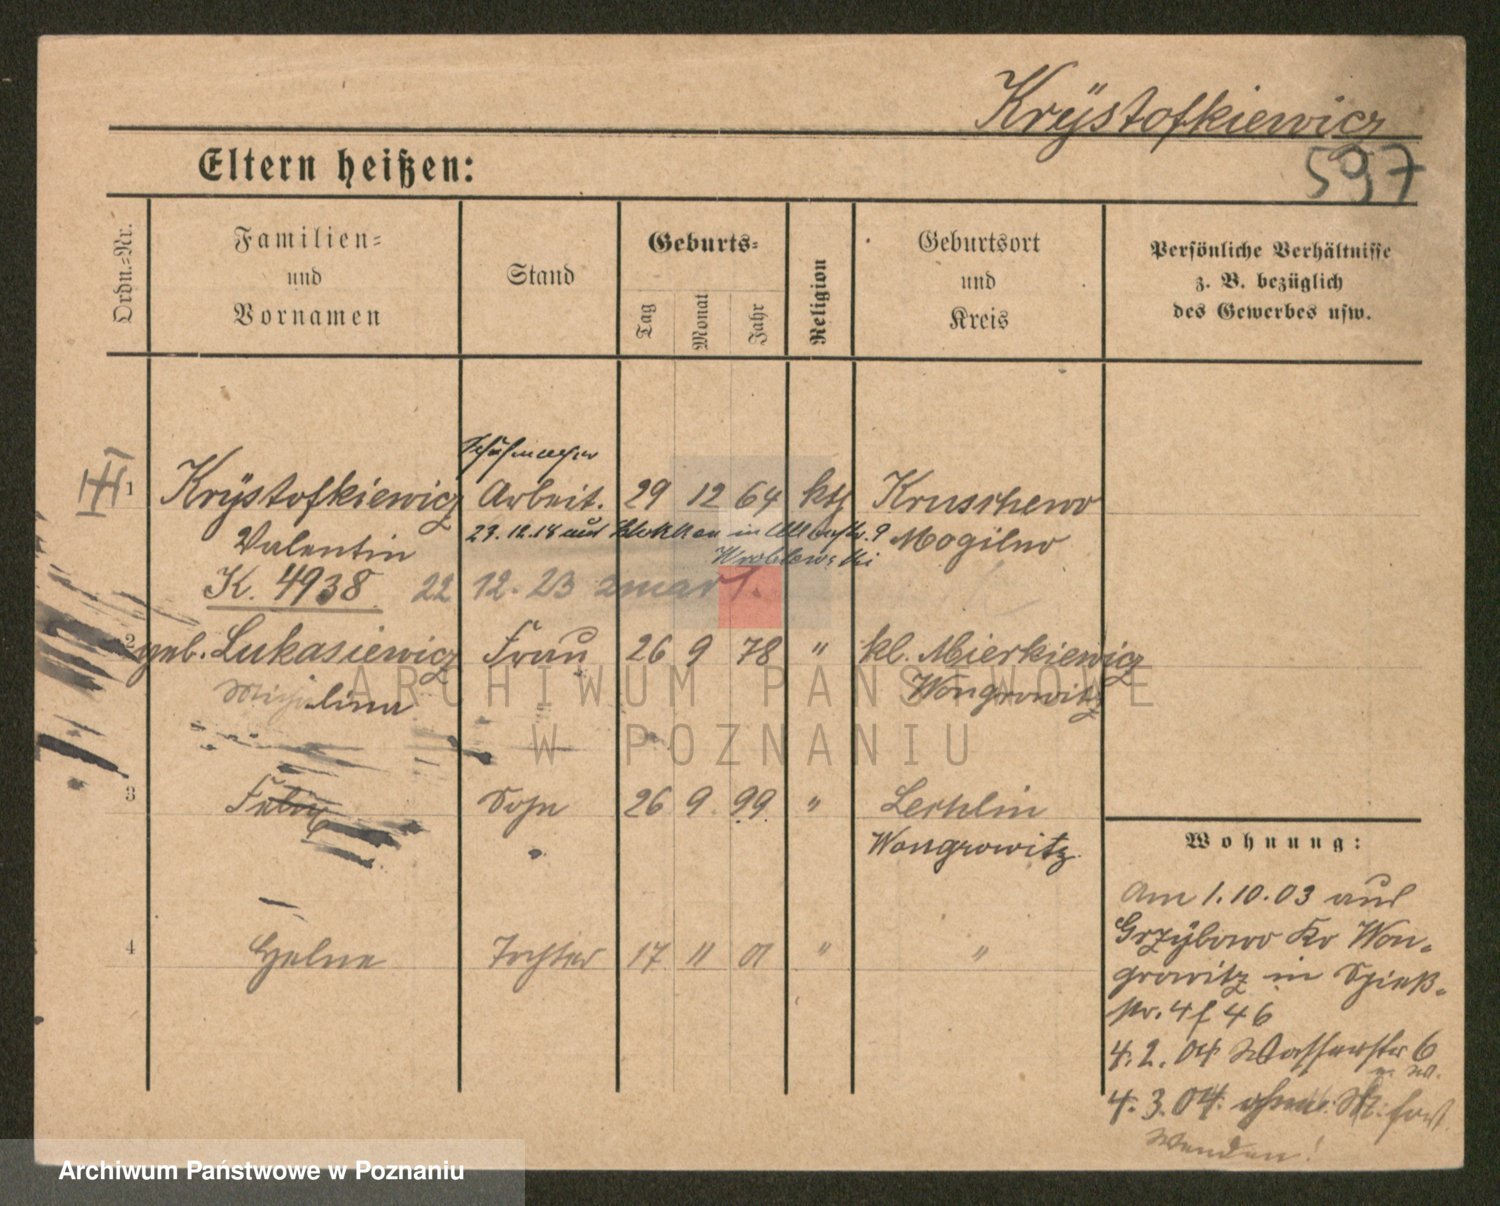 Krÿstofkiewicz
597
Eltern heißen:
Ordn.-Nr.
Familien- und Vornamen
Stand
Geburts-
Tag
Monat
Jahr
Religion
Geburtsort und Kreis
Persönliche Verhältnisse z. B. bezüglich des Gewerbes usw.
Schuhmacher
1 Krÿstofkiewicz Arbeit. 29 12 64 kth Kruschewo
Valentin 29.12.18 aus in 9 Mogilno
Wroblewski
K. 4938 22 12. 23 zmarł.
2 geb. Lukasiewicz Frau 26 9 78 " kl. Mierkiewicz
Michalina Wongrowitz
3 Felix Sohn 26 9. 99. " Lechlin
Wongrowitz
4 Helene Tochter 17 11 01 " "
Wohnung:
Am 1.10.03 aus
Grzÿbowo Kr Won-
growitz in Spieß-
str. 4 f 46
4.2.04 Wasserstr 6
4.3.04. ohne
Wenden!
ARCHIWUM PAŃSTWOWE
W POZNANIU
Archiwum Państwowe w Poznaniu